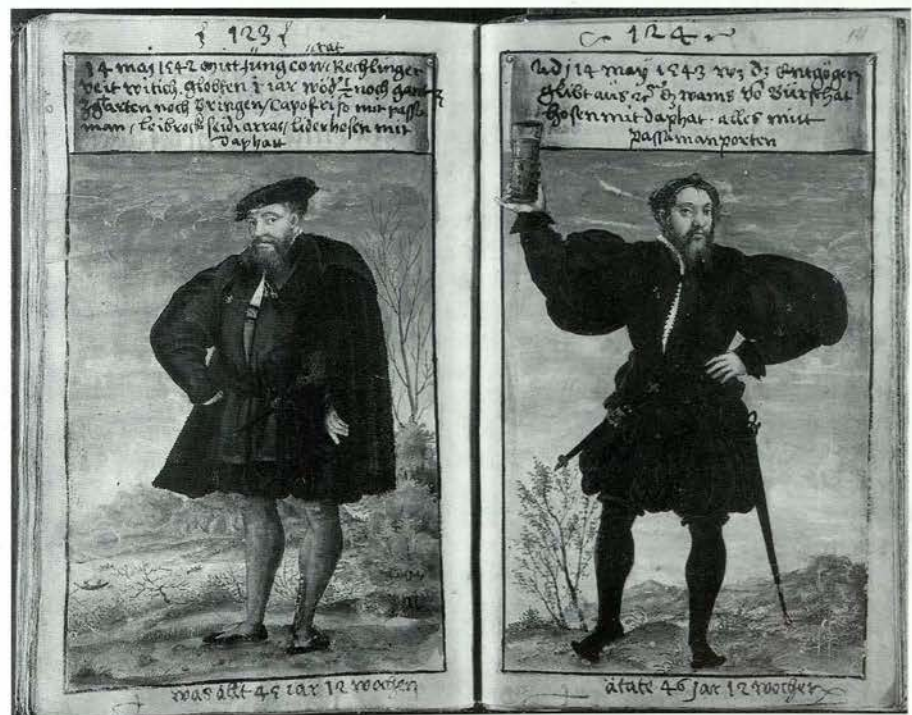 123
etat
14 maj 1542 mitt jung conr. Rechlinger
veit witich. globten 1 iar wöd 1/2 noch gantz
garten noch bringen / Capo frisso mit passe
man / leibrock seidi arras / liderhosen mit
daphatt
was allt 45 iar 12 wochen
124
Adj 14 maÿ 1543 wz dz Entgögen
glibt aus dz wams vo Burschat
hosen mit daphat. alles mitt
passamanporten
ätate 46 jar 12 wochen